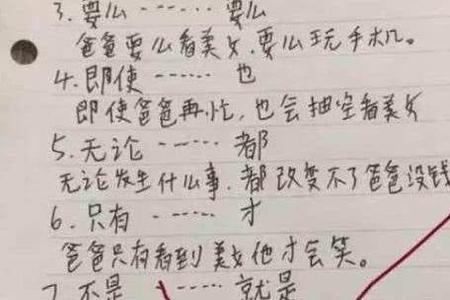 3.要么……要么
爸爸要么看美女,要么玩手机。
4.即使……也
即使爸爸再忙,也会抽空看美女
5.无论……都
无论发生什么事,都改变不了爸爸没钱
6.只有……才
爸爸只有看到美女他才会笑。
7.不是……就是